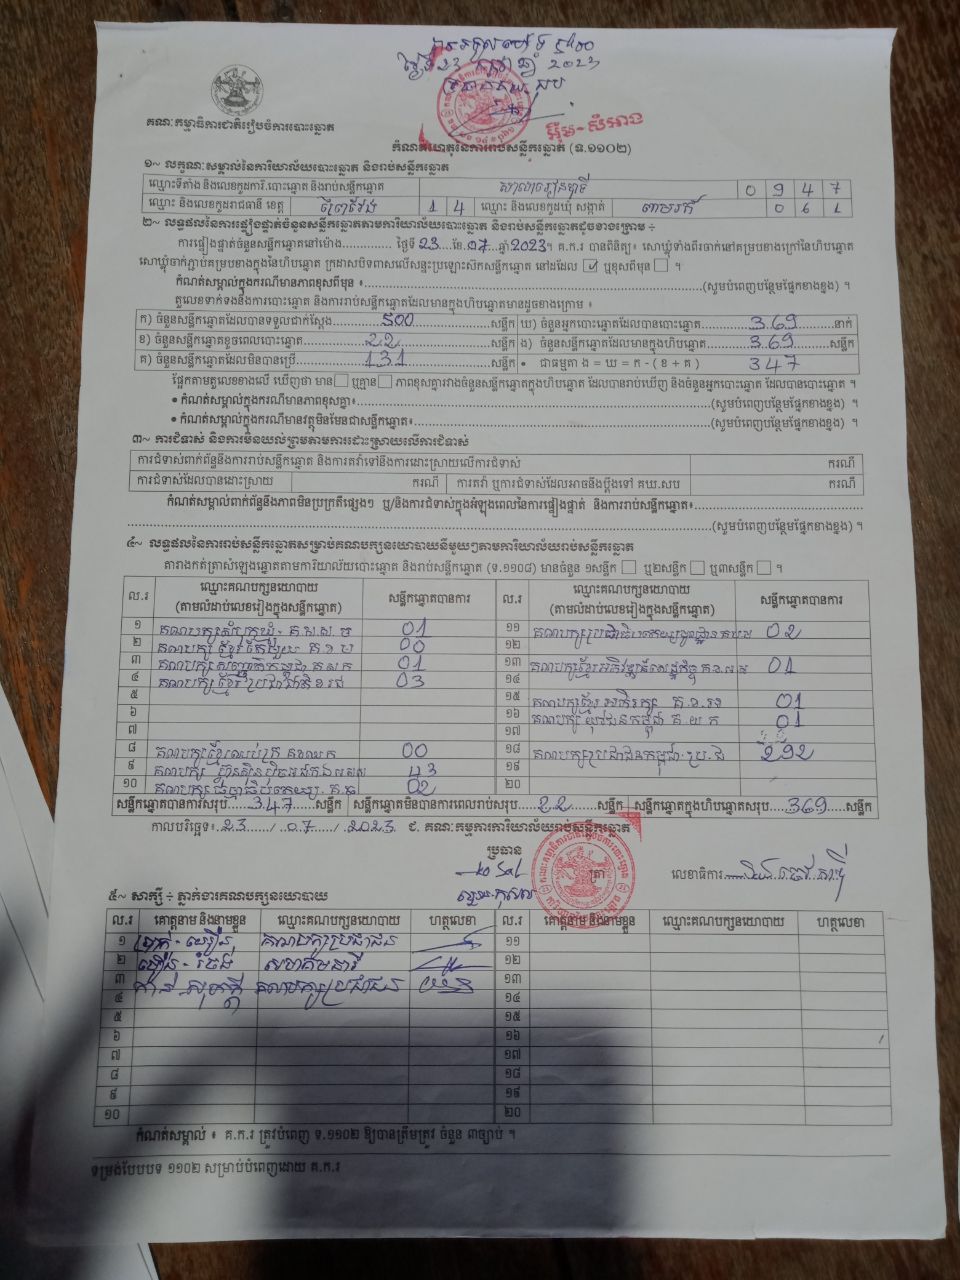 ថ្ងៃទី23 កក្កដា ឆ្នាំ ២០២៣
គណៈកម្មាធិការជាតិរៀបចំការបោះឆ្នោត
អ៊ុំម-សំអាង
កំណត់ហេតុនៃការរាប់សន្លឹកឆ្នោត (ទ.១១០២)
១~ លក្ខណៈសម្គាល់នៃការិយាល័យបោះឆ្នោត និងរាប់សន្លឹកឆ្នោត
ឈ្មោះទីតាំង និងលេខកូដការិ.បោះឆ្នោត និងរាប់សន្លឹកឆ្នោត សាលារៀន 0 9 4 7
ឈ្មោះ និងលេខកូដរាជធានី ខេត្ត ព្រៃវែង 1 4 ឈ្មោះ និងលេខកូដឃុំ សង្កាត់ ពាមរក៍ 0 6 1
២~ លទ្ធផលនៃការផ្ទៀងផ្ទាត់ចំនួនសន្លឹកឆ្នោតតាមការិយាល័យបោះឆ្នោត និងរាប់សន្លឹកឆ្នោតដូចខាងក្រោម ÷
ការផ្ទៀងផ្ទាត់ចំនួនសន្លឹកឆ្នោតនៅម៉ោង............. ថ្ងៃទី23..ខែ.07...ឆ្នាំ2023។ គ.ក.រ បានពិនិត្យ៖ សោឃ្លុំទាំងពីរចាក់នៅគម្របខាងក្រៅនៃហិបឆ្នោត
សោឃ្លុំចាក់ភ្ជាប់គម្របខាងក្នុងនៃហិបឆ្នោត ក្រដាសបិទពាសលើសន្ទះប្រឡោះស៊កសន្លឹកឆ្នោត នៅដដែល ☑ ឬខុសពីមុន ☐ ។
កំណត់សម្គាល់ក្នុងករណីមានភាពខុសពីមុន ៖......................................(សូមបំពេញបន្ថែមផ្នែកខាងខ្នង) ។
តួលេខទាក់ទងនឹងការបោះឆ្នោត និងការរាប់សន្លឹកឆ្នោតដែលមានក្នុងហិបឆ្នោតមានដូចខាងក្រោម ៖
ក) ចំនួនសន្លឹកឆ្នោតដែលបានទទួលជាក់ស្តែង..........500..........សន្លឹក ឃ) ចំនួនអ្នកបោះឆ្នោតដែលបានបោះឆ្នោត..........369..........នាក់
ខ) ចំនួនសន្លឹកឆ្នោតខូចពេលបោះឆ្នោត..........22..........សន្លឹក ង) ចំនួនសន្លឹកឆ្នោតដែលមានក្នុងហិបឆ្នោត..........369..........សន្លឹក
គ) ចំនួនសន្លឹកឆ្នោតដែលមិនបានប្រើ..........131..........សន្លឹក • ជាធម្មតា ង = ឃ = ក - ( ខ + គ ) 347
ផ្អែកតាមតួលេខខាងលើ ឃើញថា មាន☐ ឬគ្មាន☐ ភាពខុសគ្នារវាងចំនួនសន្លឹកឆ្នោតក្នុងហិបឆ្នោត ដែលបានរាប់ឃើញ និងចំនួនអ្នកបោះឆ្នោត ដែលបានបោះឆ្នោត ។
• កំណត់សម្គាល់ក្នុងករណីមានភាពខុសគ្នា៖......................................(សូមបំពេញបន្ថែមផ្នែកខាងខ្នង) ។
• កំណត់សម្គាល់ក្នុងករណីមានវត្ថុមិនមែនជាសន្លឹកឆ្នោត៖......................................(សូមបំពេញបន្ថែមផ្នែកខាងខ្នង) ។
៣~ ការជំទាស់ និងការមិនយល់ព្រមតាមការដោះស្រាយលើការជំទាស់
ការជំទាស់ពាក់ព័ន្ធនឹងការរាប់សន្លឹកឆ្នោត និងការតវ៉ាទៅនឹងការដោះស្រាយលើការជំទាស់ ករណី
ការជំទាស់ដែលបានដោះស្រាយ ករណី ការតវ៉ា ឬការជំទាស់ដែលអាចនឹងប្តឹងទៅ គឃ.សប ករណី
កំណត់សម្គាល់ពាក់ព័ន្ធនឹងភាពមិនប្រក្រតីផ្សេងៗ ឬ/និងការជំទាស់ក្នុងអំឡុងពេលនៃការផ្ទៀងផ្ទាត់ និងការរាប់សន្លឹកឆ្នោត៖..............................
......................................(សូមបំពេញបន្ថែមផ្នែកខាងខ្នង) ។
៤~ លទ្ធផលនៃការរាប់សន្លឹកឆ្នោតសម្រាប់គណបក្សនយោបាយនីមួយៗតាមការិយាល័យរាប់សន្លឹកឆ្នោត
តារាងកត់ត្រាសំឡេងឆ្នោតតាមការិយាល័យបោះឆ្នោត និងរាប់សន្លឹកឆ្នោត (ទ.១១០៨) មានចំនួន ១សន្លឹក ☐ ឬ២សន្លឹក ☐ ឬ៣សន្លឹក ☐ ។
ល.រ ឈ្មោះគណបក្សនយោបាយ (តាមលំដាប់លេខរៀងក្នុងសន្លឹកឆ្នោត) សន្លឹកឆ្នោតបានការ ល.រ ឈ្មោះគណបក្សនយោបាយ (តាមលំដាប់លេខរៀងក្នុងសន្លឹកឆ្នោត) សន្លឹកឆ្នោតបានការ
១ គណបក្សសំបុកឃ្មុំ 01 ១១ 02
២ គណបក្ស ខ្មែរតែមួយ 00 ១២
៣ គណបក្សសញ្ជាតិកម្ពុជា 01 ១៣ គណបក្សខ្មែរអភិវឌ្ឍន៍សេដ្ឋកិច្ច 01
៤ គណបក្ស ខ្មែរ 03 ១៤
៥ ១៥ គណបក្សខ្មែរ អភិរក្ស 01
៦ ១៦ គណបក្ស យុវជនកម្ពុជា 01
៧ ១៧
៨ គណបក្សខ្មែរឈប់ក្រ 00 ១៨ គណបក្សប្រជាជនកម្ពុជា 292
៩ គណបក្ស ហ៊្វុនស៊ិនប៉ិច 43 ១៩
១០ គណបក្ស ធម្មាធិបតេយ្យ 02 ២០
សន្លឹកឆ្នោតបានការសរុប.....347.....សន្លឹក សន្លឹកឆ្នោតមិនបានការពេលរាប់សរុប.....22.....សន្លឹក សន្លឹកឆ្នោតក្នុងហិបឆ្នោតសរុប.....369.....សន្លឹក
កាលបរិច្ឆេទ៖.23...../.07...../.2023 ជ. គណៈកម្មការការិយាល័យរាប់សន្លឹកឆ្នោត
ប្រធាន
ត្រា
លេខាធិការ
៥~ សាក្សី ÷ ភ្នាក់ងារគណបក្សនយោបាយ
ល.រ គោត្តនាម និងនាមខ្លួន ឈ្មោះគណបក្សនយោបាយ ហត្ថលេខា ល.រ គោត្តនាម និងនាមខ្លួន ឈ្មោះគណបក្សនយោបាយ ហត្ថលេខា
១ គណបក្សប្រជាជន ១១
២ ១២
៣ គណបក្សប្រជាជន ១៣
៤ ១៤
៥ ១៥
៦ ១៦
៧ ១៧
៨ ១៨
៩ ១៩
១០ ២០
កំណត់សម្គាល់ ៖ គ.ក.រ ត្រូវបំពេញ ទ.១១០២ ឱ្យបានត្រឹមត្រូវ ចំនួន ៣ច្បាប់ ។
ទម្រង់បែបបទ ១១០២ សម្រាប់បំពេញដោយ គ.ក.រ